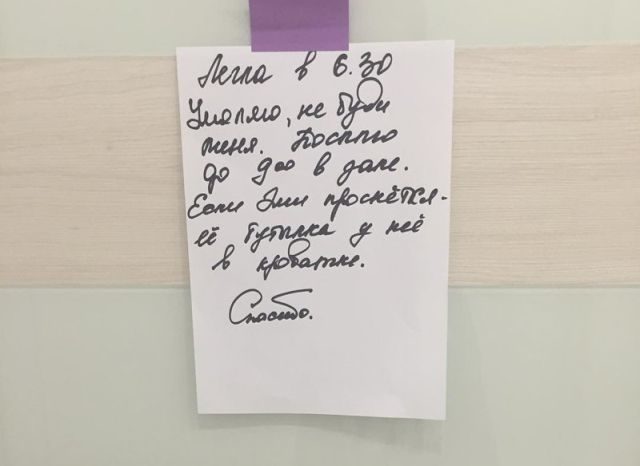 Легла в 6.30
Умоляю, не буди
меня. Посплю
до 9оо в зале.
Если Эми проснётся-
её бутылка у неё
в кроватке.
Спасибо.